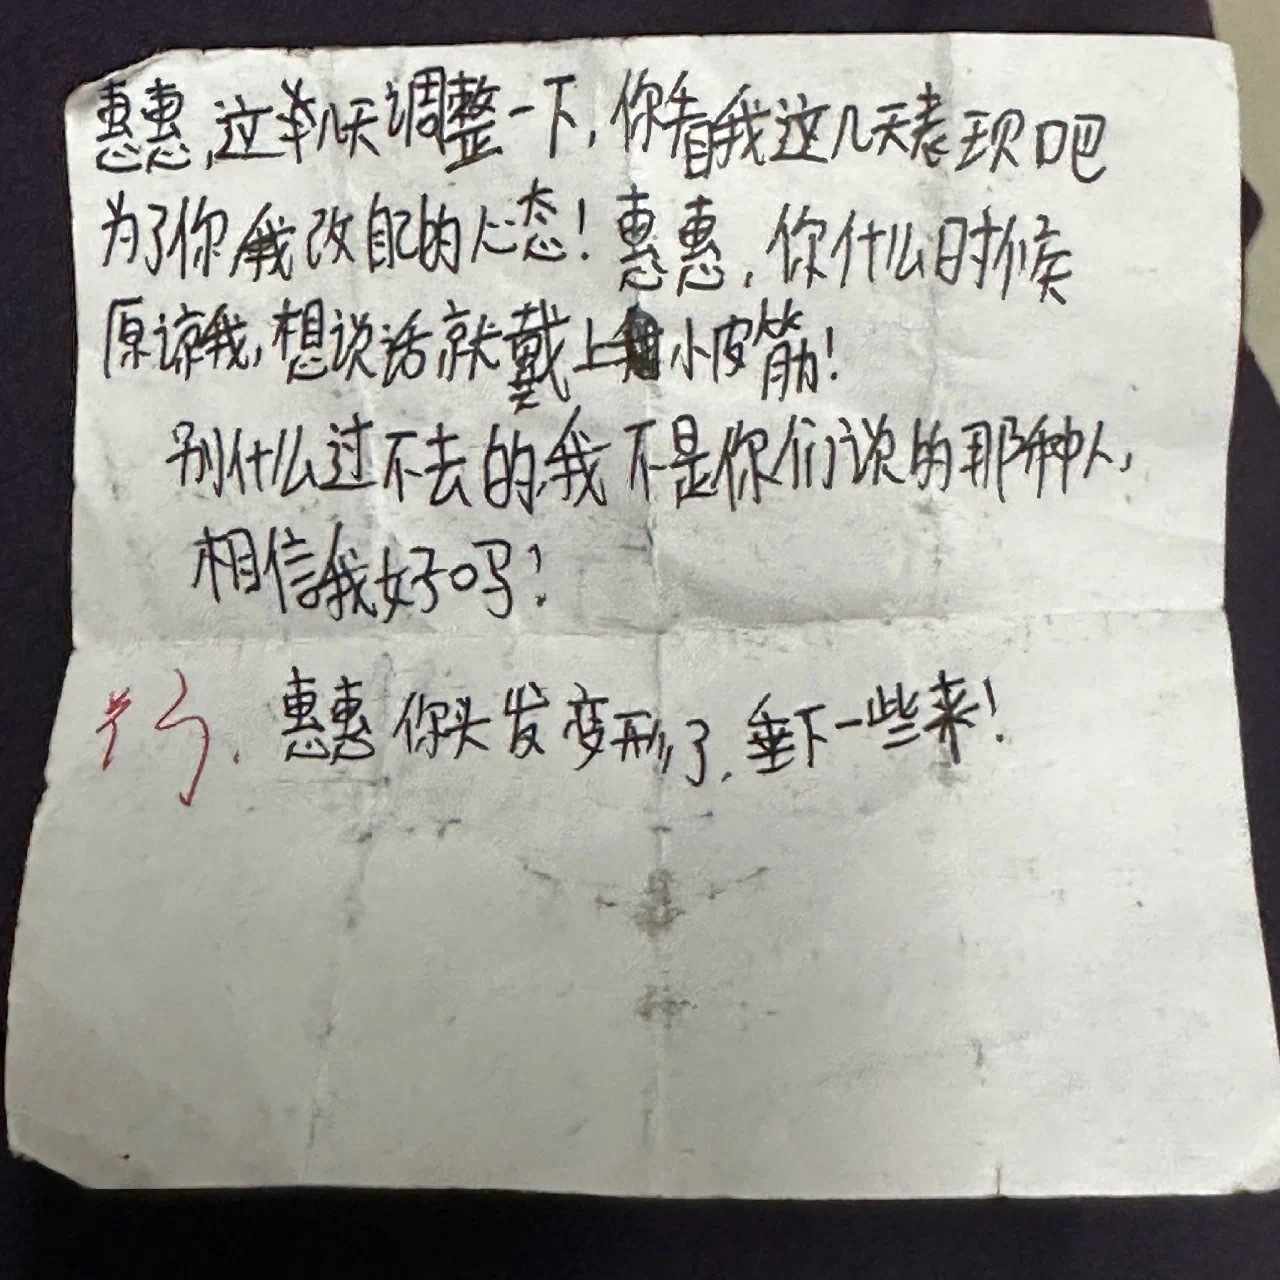 惠惠,这几天调整一下,你看我这几天表现吧
为了你我改自己的心态!惠惠,你什么时候
原谅我,想说话就戴上小皮筋!
别什么过不去的,我不是你们说的那种人,
相信我好吗?
惠惠你头发变形了,垂下一些来!